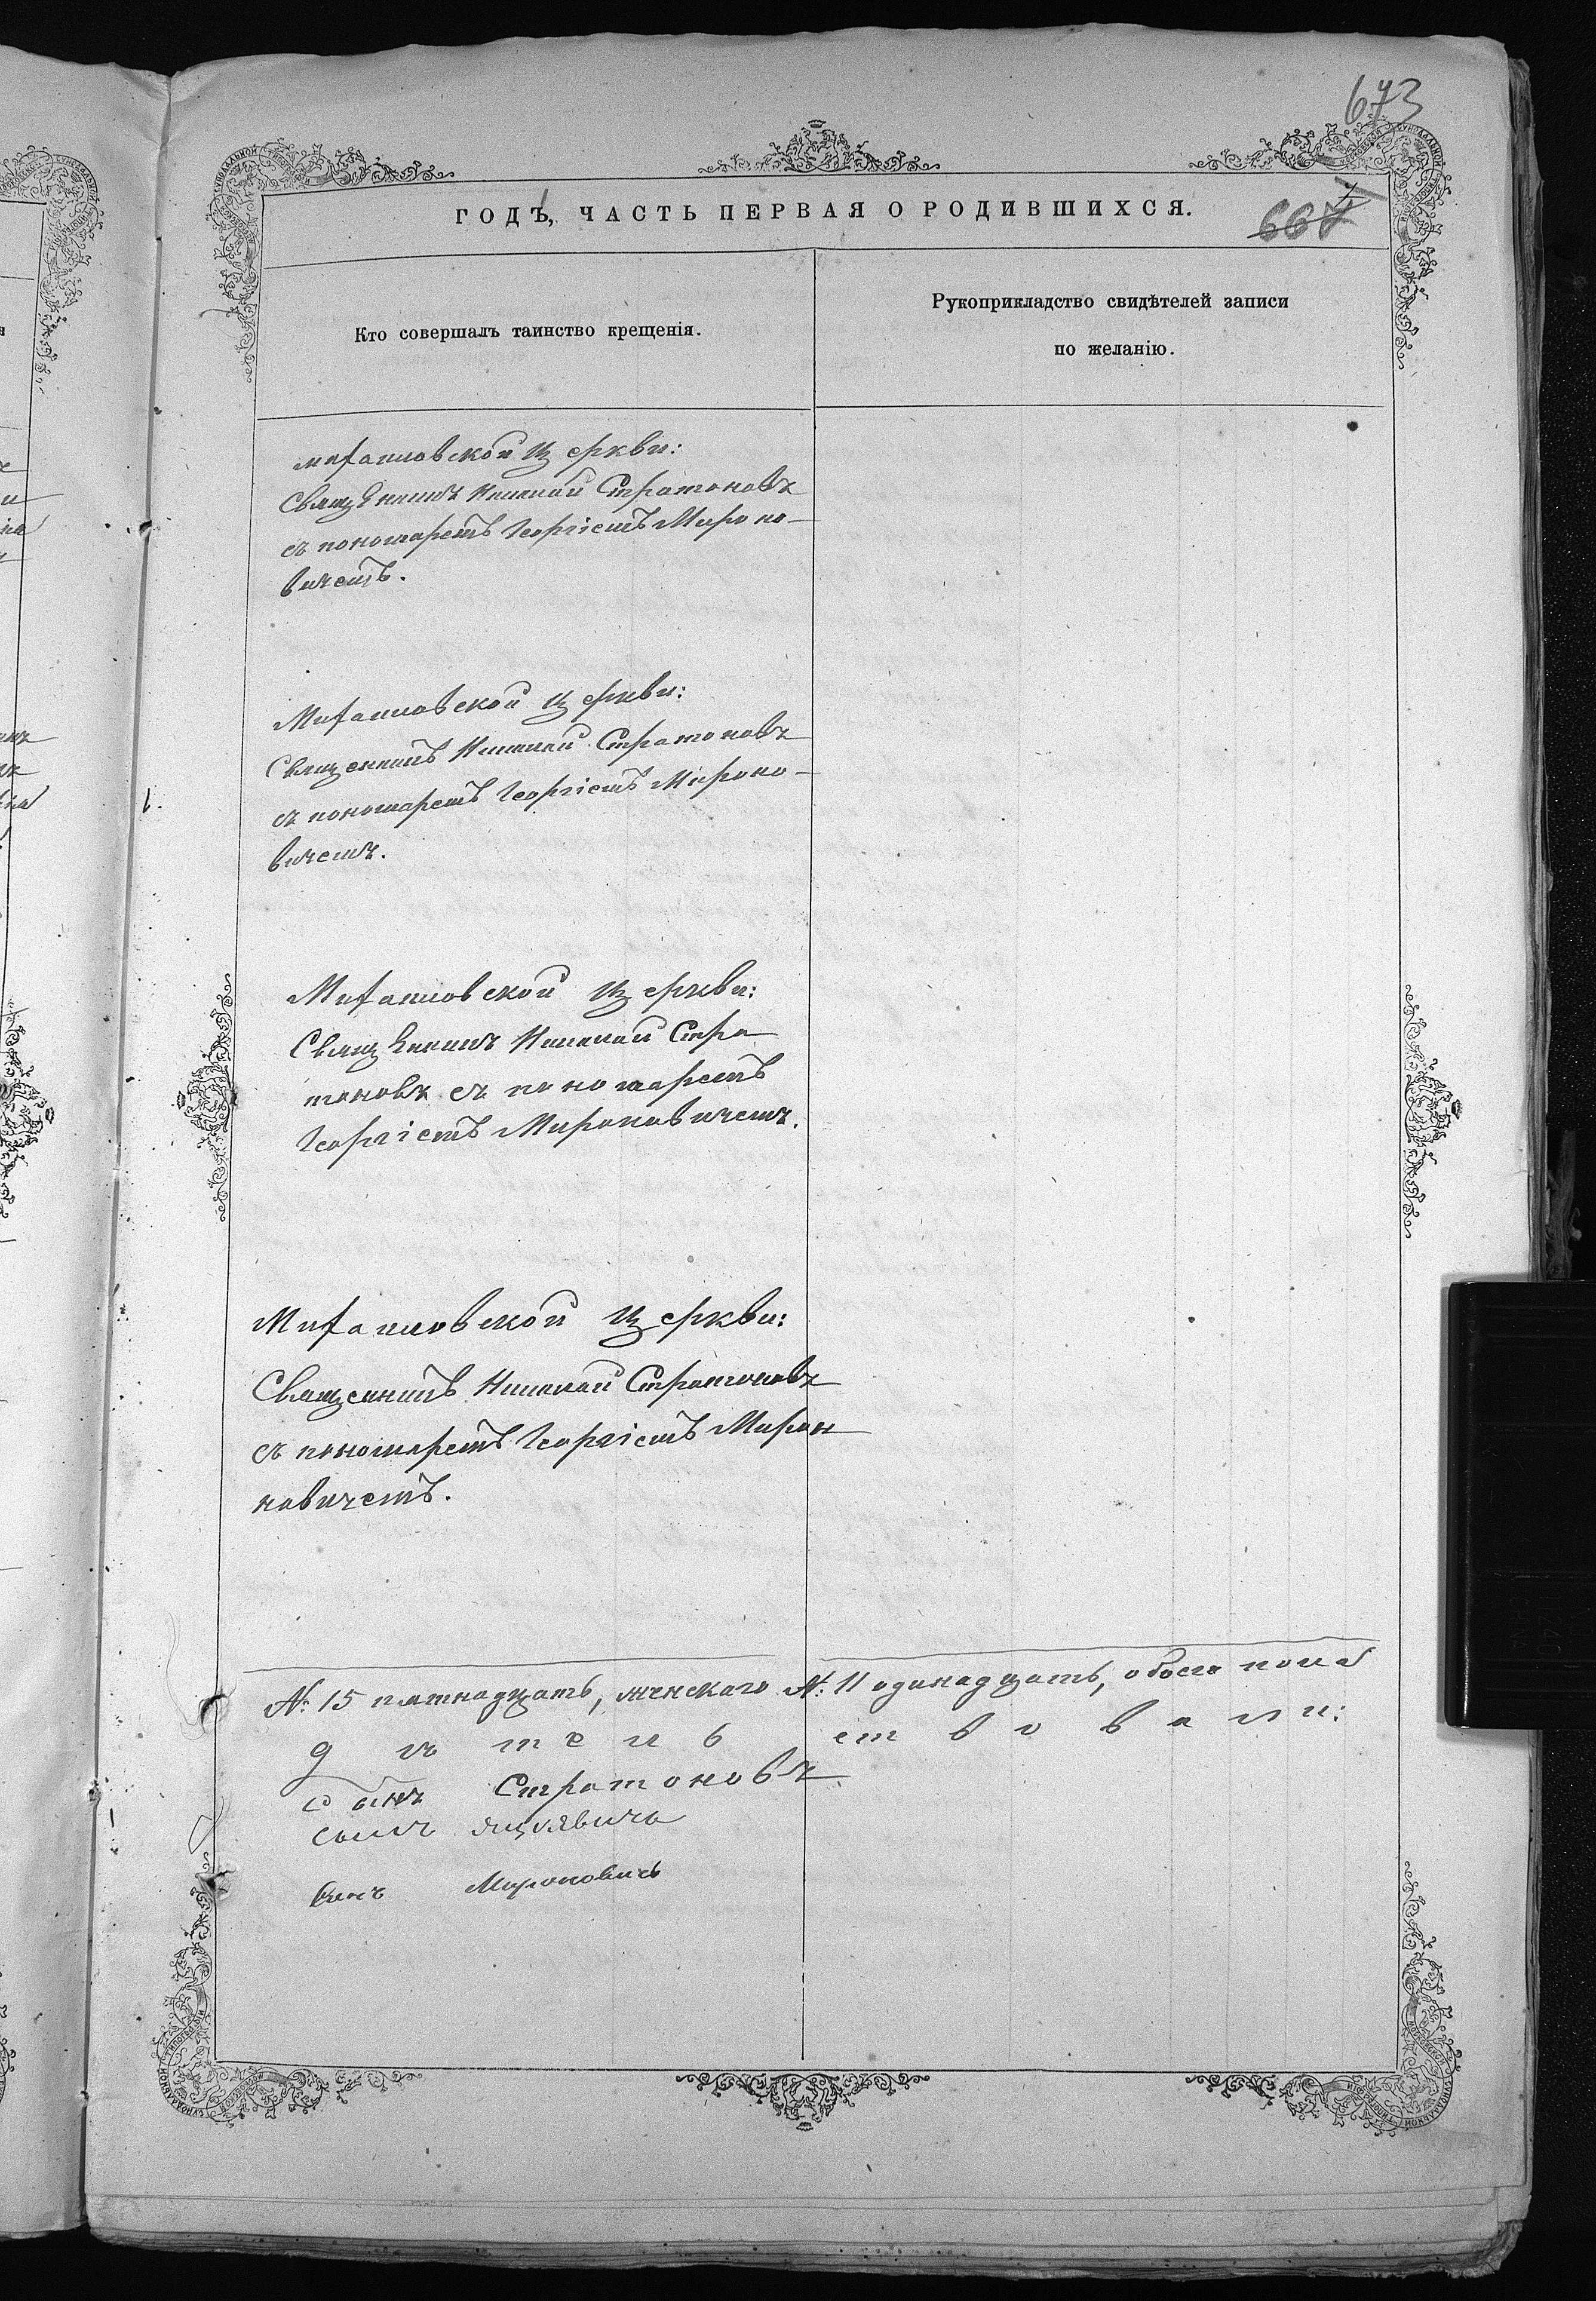 673
ГОДЪ, ЧАСТЬ ПЕРВАЯ О РОДИВШИХСЯ.
667
Кто совершалъ таинство крещенія.
Рукоприкладство свидѣтелей записи
по желанію.
михаиловской церкви:
Священникъ Николай Стратоновъ
съ пономаремъ Георгіемъ Мироно-
вичемъ.
Михаиловской церкви:
Священникъ Николай Стратоновъ
съ пономаремъ Георгіемъ Мироно-
вичемъ.
Михаиловской церкви:
Священникъ Николай Стра
тоновъ съ пономаремъ
Георгіемъ Мироновичемъ.
Михаиловской церкви:
Священникъ Николай Стратоновъ
съ пономаремъ Георгіемъ Мирон
новичемъ.
№ 15 пятнадцать, женскаго № 11 одинадцать, обоего пола
д ѣ т е л ь ст в о в а л и:
Стратоновъ
Мироновичъ